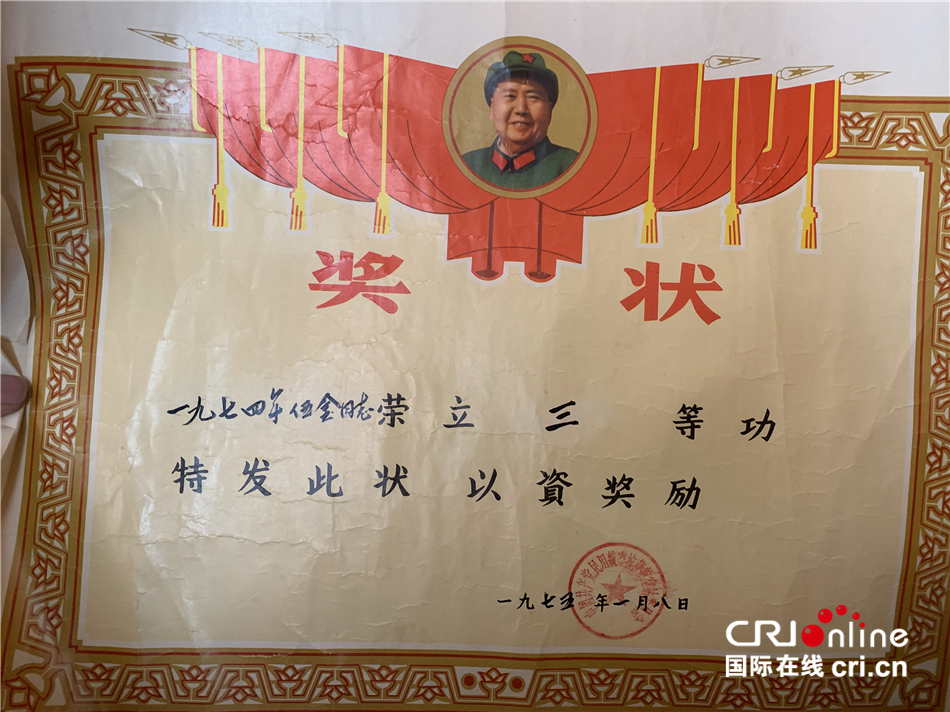 奖状
一九七四年伍金同志荣立三等功
特发此状以資奖励
一九七五年一月八日
CRI online
国际在线 cri.cn